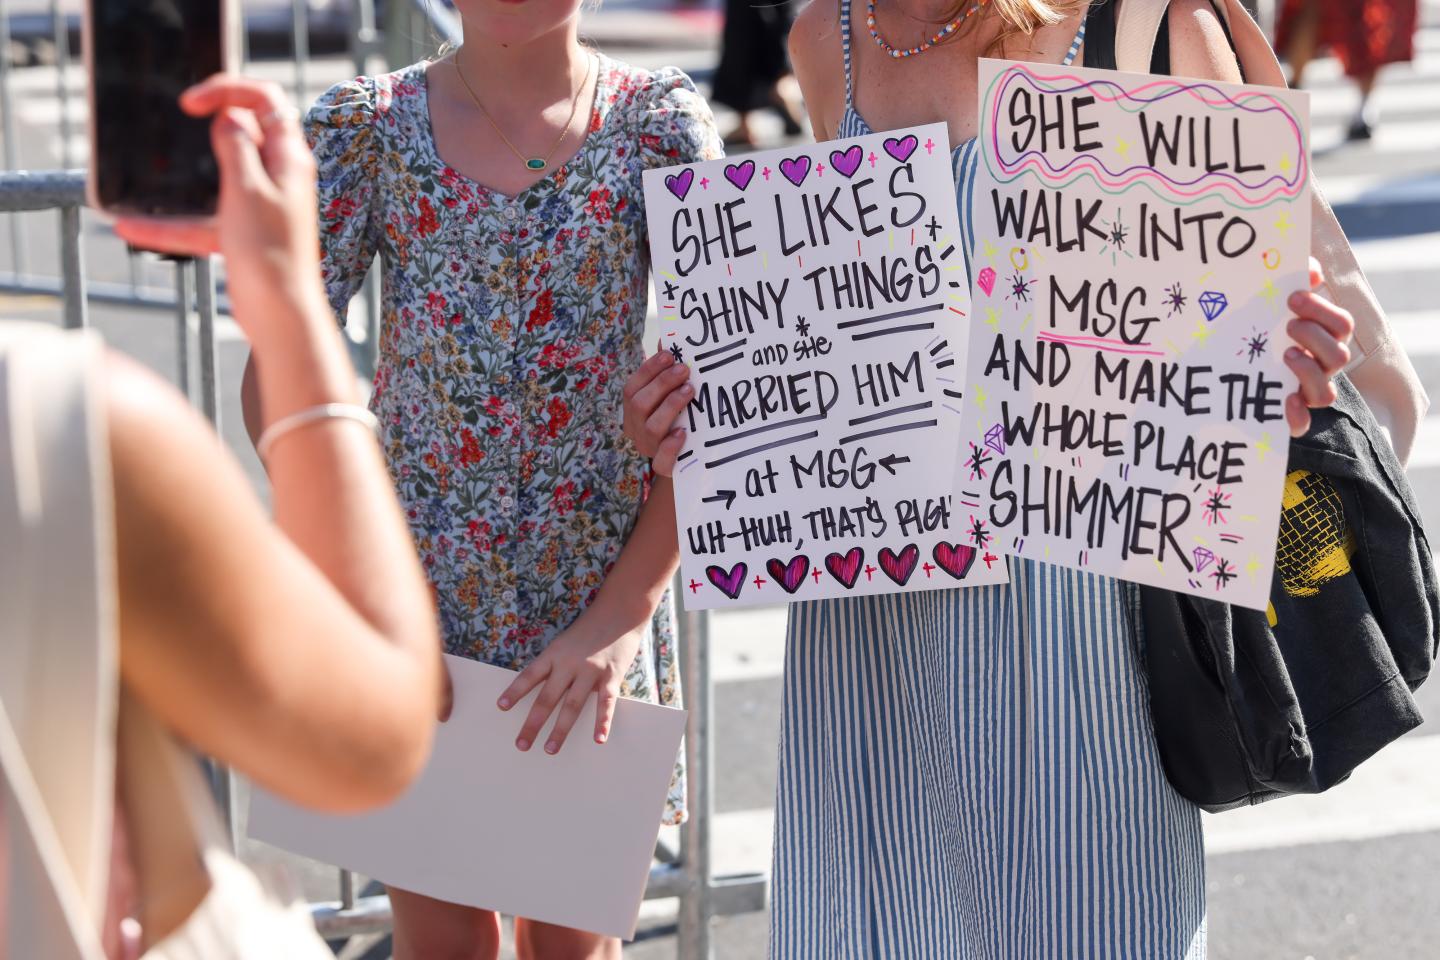 SHE LIKES
SHINY THINGS
and she
MARRIED HIM
at MSG
UH-HUH, THAT'S RIGH
SHE WILL
WALK INTO
MSG
AND MAKE THE
WHOLE PLACE
SHIMMER